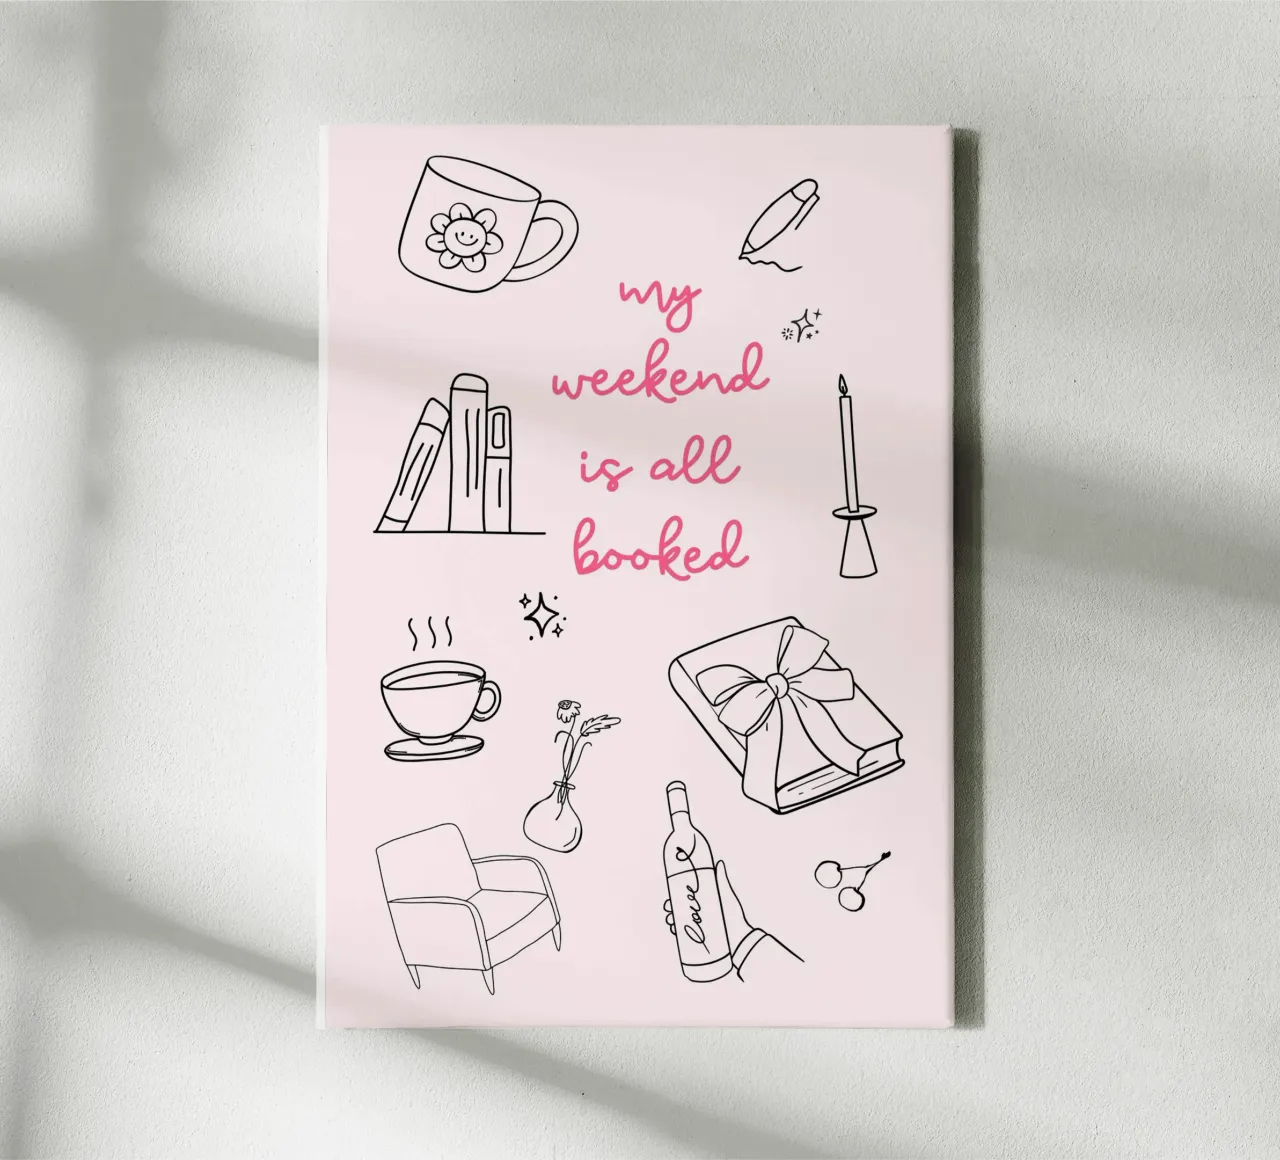 my
weekend
is all
booked
love